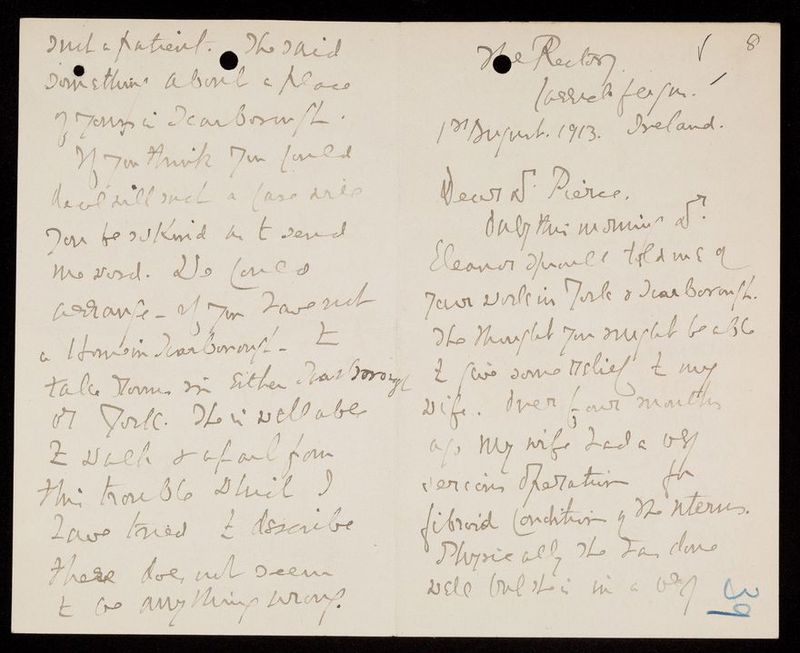 8
The Rectory
Carrickfergus.
1st August. 1913. Ireland.
Dear Dr Pierce,
Only this morning Dr
Eleanor told me of
your work in York & Scarborough.
She thought you might be able
to give some relief to my
wife. Over four months
ago my wife had a very
serious operation for
fibroid condition of the uterus.
Physically she has done
well but she is in a very
39
such a patient. She said
something about a place
of yours in Scarborough.
If you think you could
deal with such a case will
you be so kind as to send
me word. We could
arrange - if you have not
a Home in Scarborough - to
take rooms in either Scarborough
or York. She is well able
to walk & apart from
this trouble which I
have tried to describe
there does not seem
to be anything wrong.